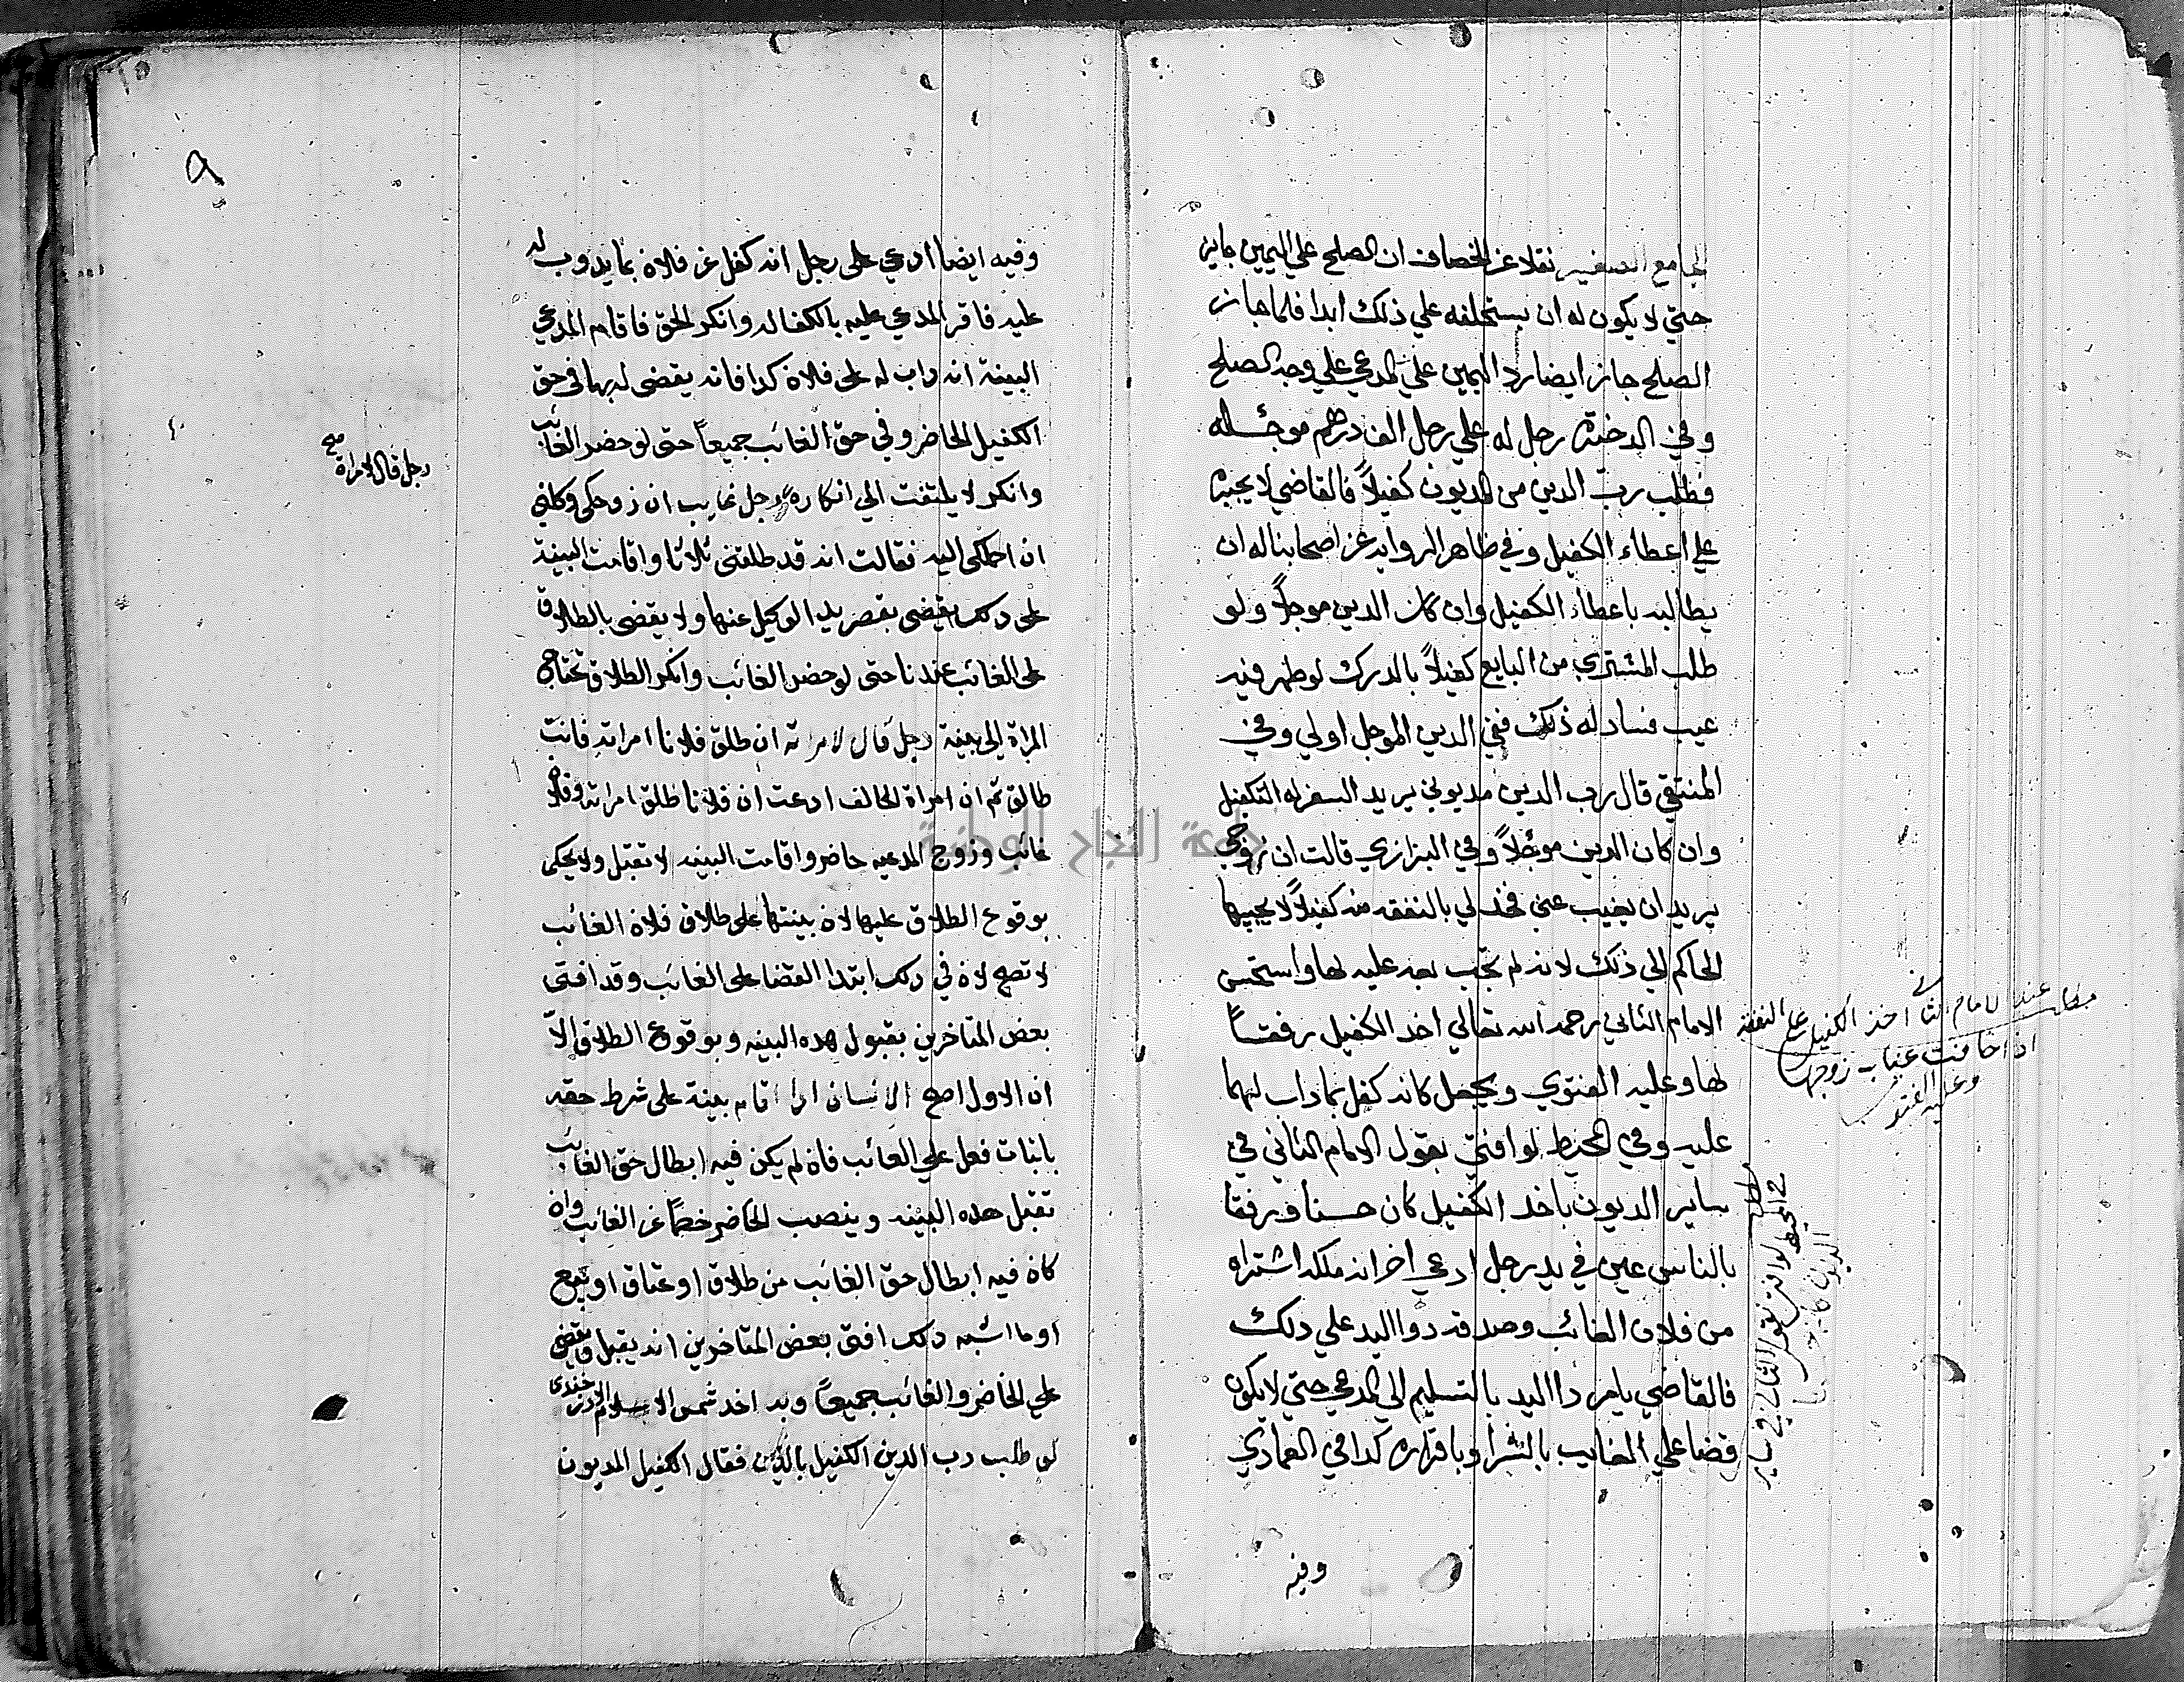 الجامع الصغير نقلا عن الخصاف ان الصلح علي اليمين جايز
حتي لا يكون له ان يستحلفه علي ذلك ابدا فلما جاز
الصلح جاز ايضا رد اليمين علي المدعي علي وجه الصلح
وفي الدخيرة رجل له علي رجل الف درهم موجله
فطلب رب الدين من المديون كفيلاً فالقاضي لا يجبره
علي اعطاء الكفيل وفي ظاهر الروايه عن اصحابنا له ان
يطالبه باعطاء الكفيل وان كان الدين موجلاً ولو
طلب المشتري من البايع كفيلاً بالدرك لو ظهر فيه
عيب فساد له ذلك ففي الدين الموجل اولي وفي
المنتقي قال رب الدين مديوني يريد السفر له التكفيل
وان كان الدين موجلاً وفي البزازي قالت ان زوجي
يريد ان يغيب عني فخد لي بالنفقه منه كفيلاً لا يجيبها
الحاكم الي ذلك لانه لم تجب بعد عليه لها واستحسن
الامام الثاني رحمه الله تعالي اخد الكفيل رفقاً
لها وعليه الفتوي ويجعل كانه كفل بما داب لهما
عليه وفي المحيط لو افتي بقول الامام الثاني في
ساير الديون باخد الكفيل كان حسنا ورفقا
بالناس عين في يد رجل ادعي اخر انه ملكه اشتراه
من فلان الغائب وصدقه دوا اليد علي دلك
فالقاضي يامر دا اليد بالتسليم الي المدعي حتي لا يكون
قضا علي الغايب بالشرا وباقراره كدا في العمادي
وفيه
مطلب عند الامام الثاني اخذ الكفيل علي النفقة
اذا خافت غياب زوجها
وعليه الفتوي
مطلب في المحيط لو افتي بقول الثاني في ساير
الديون كان حسنا
٩
وفيه ايضا ادعي على رجل انه كفل عن فلان بما يدوب له
عليه فاقر المدعي عليه بالكفاله وانكر الحق فاقام المدعي
البينة انه داب له على فلان كدا فانه يقضى له بها في حق
الكفيل الحاضر وفي حق الغائب جميعاً حتى لو حضر الغائب
وانكر لا يلتفت الي انكاره رجل غايب ان زوجكي وكلني
ان احملكي اليه فقالت انه قد طلقني ثلاثا واقامت البينة
على دلك يقضى بقصر يد الوكيل عنها ولا يقضى بالطلاق
على الغائب عندنا حتى لو حضر الغائب وانكر الطلاق تحتاج
المراة الي بينة رجل قال لامراته ان طلق فلانا امراته فانت
طالق ثم ان امراة الحالف ادعت ان فلانا طلق امراته وفلان
غائب وزوج المدعيه حاضر واقامت البينه لا تقبل ولا يحكى
بوقوع الطلاق عليها لان بينتها على طلاق فلان الغائب
لا تصح لان في دلك ابتدا القضا على الغائب وقد افتى
بعض المتاخرين بقبول هده البينه وبوقوع الطلاق الا
ان الاول اصح الانسان ادا اقام بينة على شرط حقه
باثبات فعل علي الغائب فان لم يكن فيه ابطال حق الغائب
تقبل هده البينه وينصب الحاضر خصماً عن الغائب وان
كان فيه ابطال حق الغائب من طلاق او عتاق او بيع
او ما اشبه دلك افتى بعض المتاخرين انه يقبل ويقضى
علي الحاضر والغائب جميعاً وبه اخد شمس الاسلام الاوزجندى
لو طلب رب الدين الكفيل بالدين فقال الكفيل المديون
رجل قال لامراة